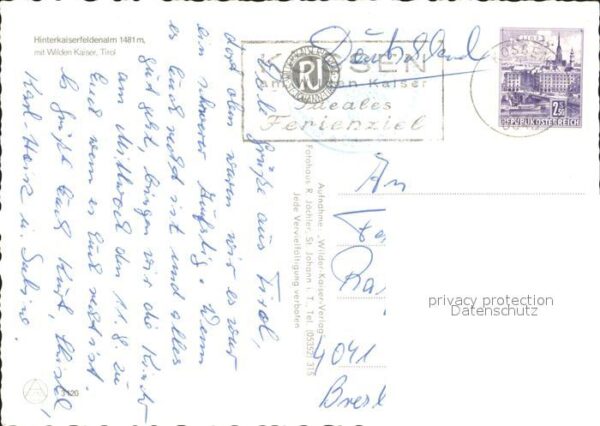 Hinterkaiserfeldenalm 1481 m,
mit Wilden Kaiser, Tirol
Viele Grüße aus Tirol,
dort oben waren wir es war
ein schwerer Aufstieg. Wenn
es Euch recht ist und alles
gut geht bringen wir die Kinder
am Mittwoch den 11.8. zu
Euch wenn es Euch recht ist.
Es grüßt Euch Kurt,
Karl-Heinz u. Sabine.
3426
Aufnahme: „Wilder Kaiser-Verlag“
Fotohaus R. Jöchler, St. Johann i. T., Tel. (05352) 315
Jede Vervielfältigung verboten
Deutschland
KÖSSEN
am Wilden Kaiser
Ideales
Ferienziel
2.50
REPUBLIK ÖSTERREICH
An
Fa
Ra
privacy protection
Datenschutz
4041
Bresl